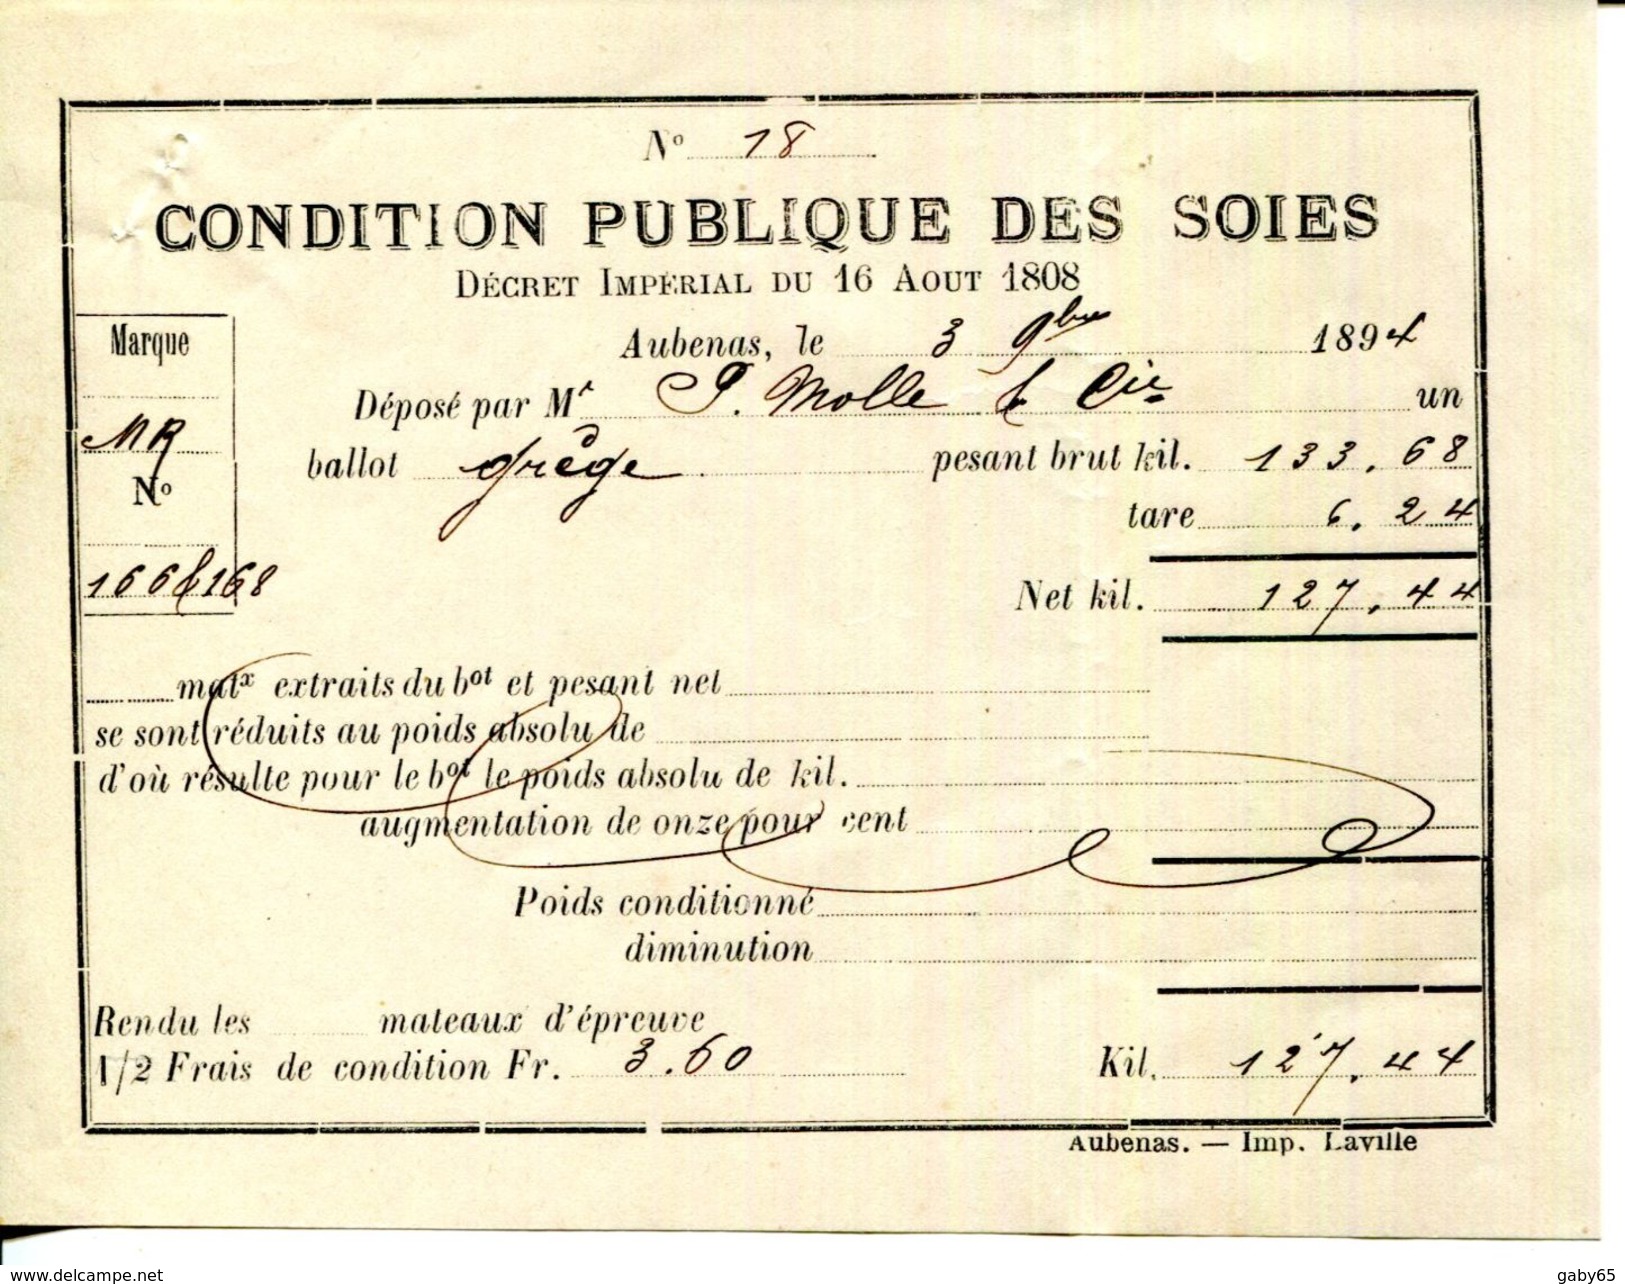 Nº 18
CONDITION PUBLIQUE DES SOIES
DÉCRET IMPÉRIAL DU 16 AOUT 1808
Aubenas, le 3 9bre 1894
Marque
MR
Nº
166 & 168
Déposé par Mr P. Molle & Cie un
ballot grège pesant brut kil. 133.68
tare 6.24
Net kil. 127.44
matx extraits du bot et pesant net
se sont réduits au poids absolu de
d'où résulte pour le bot le poids absolu de kil.
augmentation de onze pour cent
Poids conditionné
diminution
Rendu les mateaux d'épreuve
1/2 Frais de condition Fr. 3.60 Kil. 127.44
Aubenas. — Imp. Laville
delcampe.net
gaby65